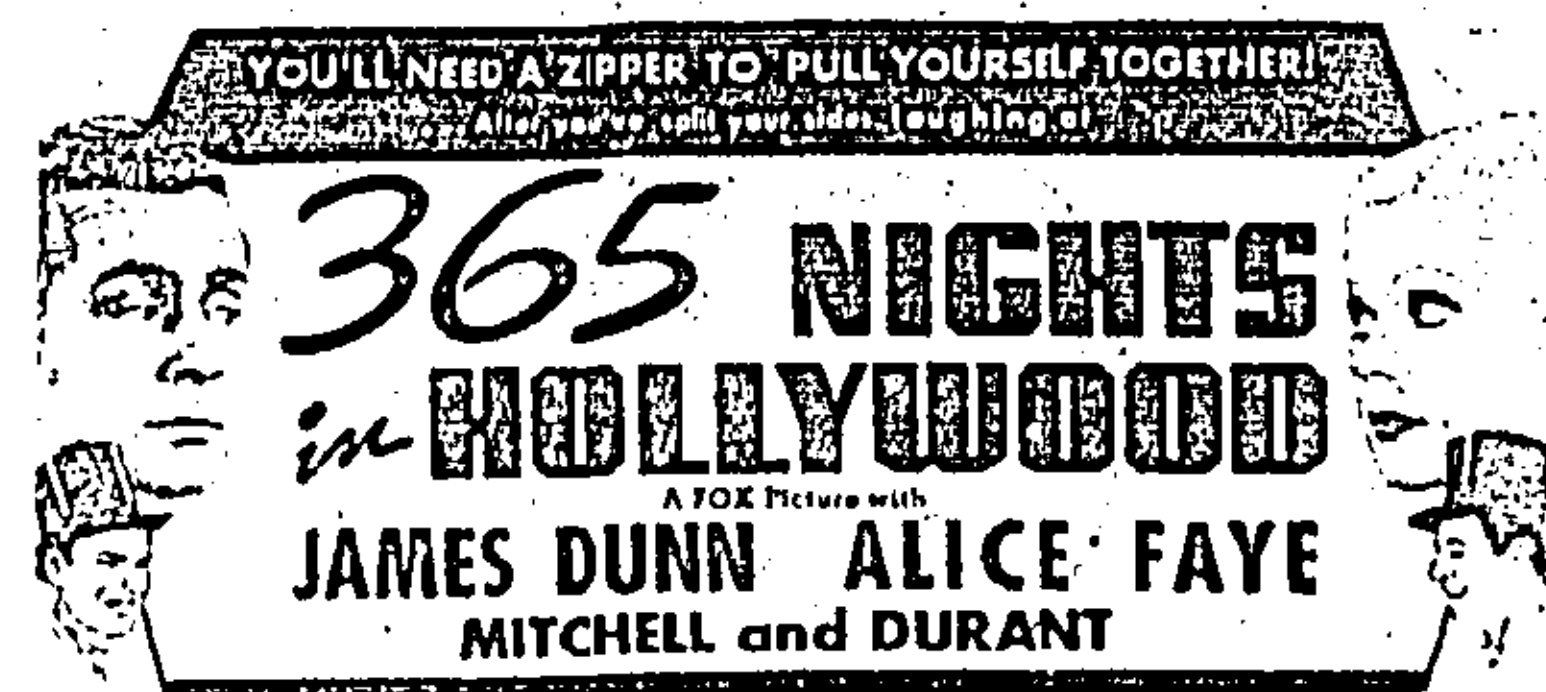 YOU'LL NEED A ZIPPER TO PULL YOURSELF TOGETHER!
After you've split your sides laughing at
365 NIGHTS
in HOLLYWOOD
A FOX Picture with
JAMES DUNN ALICE FAYE
MITCHELL and DURANT